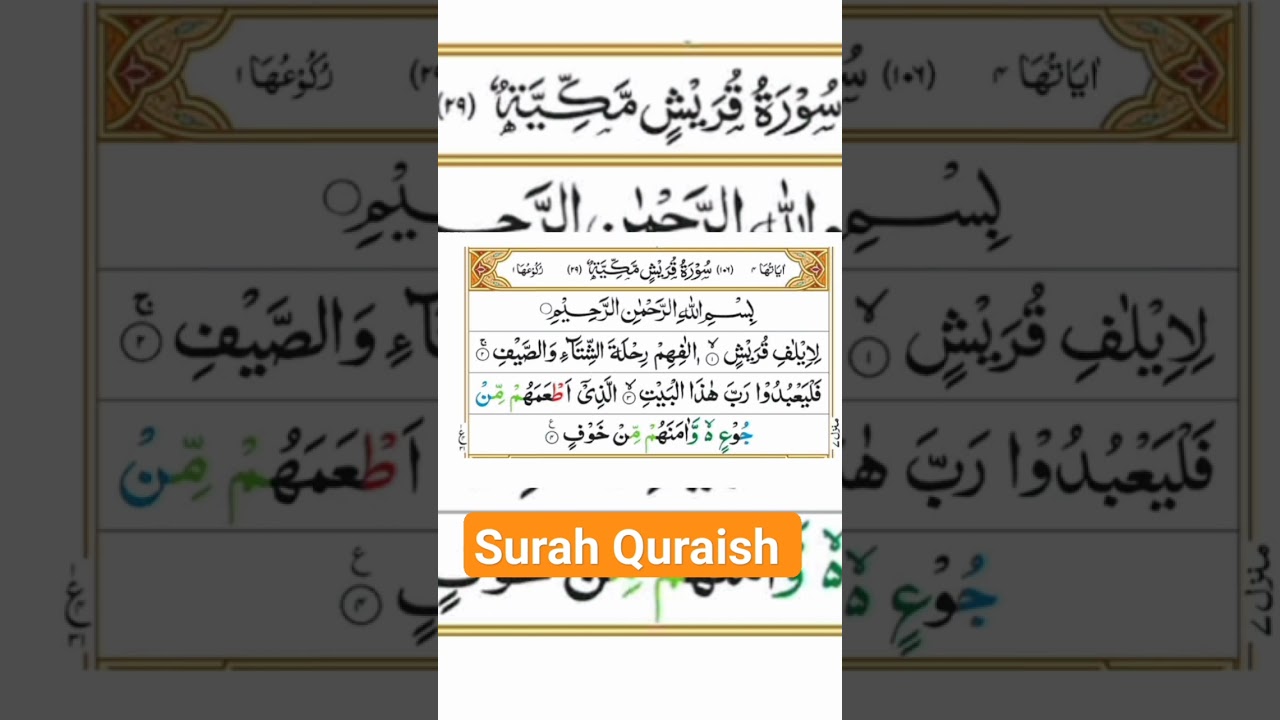 سُوْرَةُ قُرَيْشٍ مَّكِّيَّةٌ (٢٩)
اٰيَاتُهَا ٤ (١٠٦) سُوْرَةُ قُرَيْشٍ مَّكِّيَّةٌ (٢٩) رُكُوْعُهَا ١
بِسْمِ اللّٰهِ الرَّحْمٰنِ الرَّحِيْمِ
لِاِيْلٰفِ قُرَيْشٍ ۙ﴿١﴾ اٖلٰفِهِمْ رِحْلَةَ الشِّتَآءِ وَالصَّيْفِ ۚ﴿٢﴾
فَلْيَعْبُدُوْا رَبَّ هٰذَا الْبَيْتِ ۙ﴿٣﴾ الَّذِيْٓ اَطْعَمَهُمْ مِّنْ
جُوْعٍ ۙ۬ وَّاٰمَنَهُمْ مِّنْ خَوْفٍ ﴿٤﴾
منزل ٧
Surah Quraish